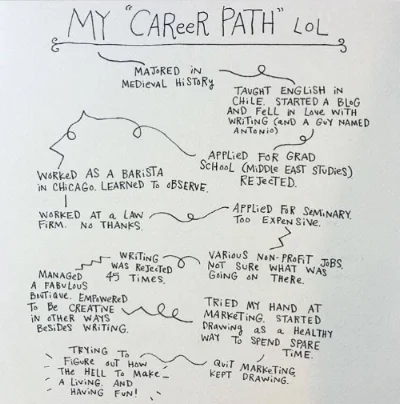 MY "CAReeR PATH" LOL
MAJORED IN
MEDIEVAL HISTORY
TAUGHT ENGLISH IN
CHILE. STARTED A BLOG
AND FELL IN LOVE WITH
WRITING (AND A GUY NAMED
ANTONIO)
APPLIED FOR GRAD
SCHOOL (MIDDLE EAST STUDIES)
REJECTED.
WORKED AS A BARISTA
IN CHICAGO. LEARNED TO OBSERVE.
WORKED AT A LAW
FIRM. NO THANKS.
APPLIED FOR SEMINARY.
TOO EXPENSIVE.
VARIOUS NON-PROFIT JOBS.
NOT SURE WHAT WAS
GOING ON THERE.
WRITING
WAS REJECTED
45 TIMES.
MANAGED
A FABULOUS
BOUTIQUE. EMPOWERED
TO BE CREATIVE
IN OTHER WAYS
BESIDES WRITING.
TRIED MY HAND AT
MARKETING. STARTED
DRAWING AS A HEALTHY
WAY TO SPEND SPARE
TIME.
QUIT MARKETING
KEPT DRAWING.
TRYING TO
FIGURE OUT HOW
THE HELL TO MAKE
A LIVING. AND
HAVING FUN!